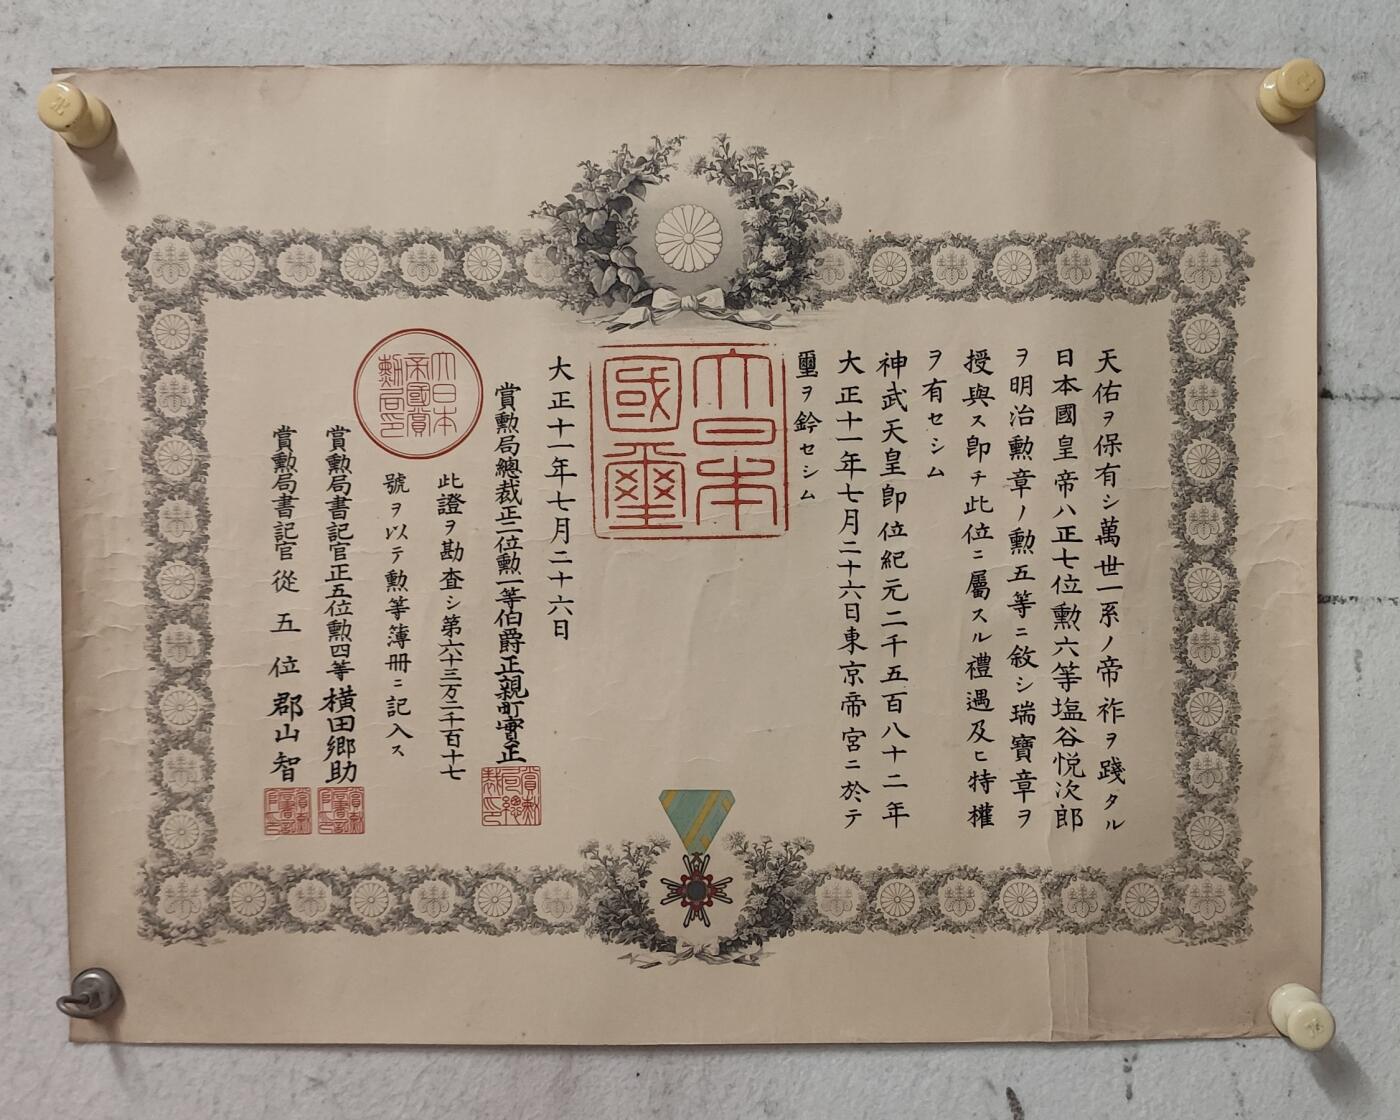 天佑ヲ保有シ萬世一系ノ帝祚ヲ踐タル
日本國皇帝ハ正七位勲六等塩谷悦次郎
ヲ明治勲章ノ勲五等ニ敘シ瑞寶章ヲ
授與ス卽チ此位ニ屬スル禮遇及ヒ特權
ヲ有セシム
神武天皇卽位紀元二千五百八十二年
大正十一年七月二十六日東京帝宮ニ於テ
璽ヲ鈐セシム
大日本
國璽
大正十一年七月二十六日
賞勲局總裁正二位勲一等伯爵正親町實正
賞勲局總裁印
此證ヲ勘査シ第六十三万二千百十七
號ヲ以テ勲等簿冊ニ記入ス
大日本
帝國賞
勲局印
賞勲局書記官正五位勲四等横田郷助
賞勲局書記官從五位郡山智